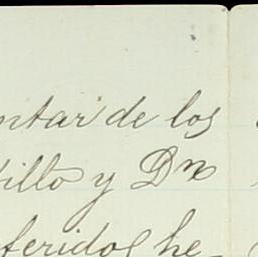 ntar de los
illo y Dn
feridos he_